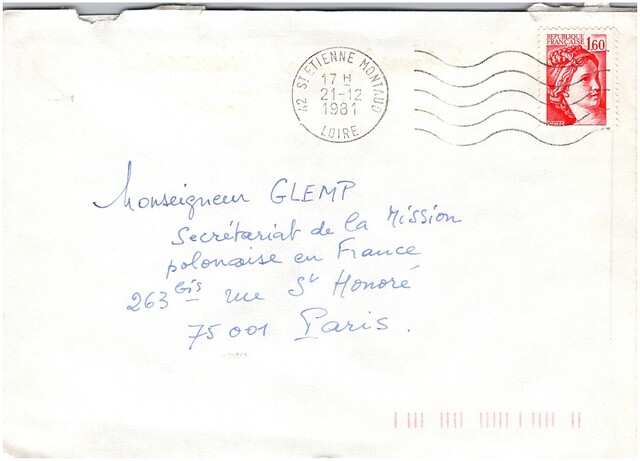 RÉPUBLIQUE
FRANÇAISE 1,60
42 ST ETIENNE MONTAUD
17 H
21-12
1981
LOIRE
Monseigneur GLEMP
Secrétariat de la Mission
polonaise en France
263 bis rue St Honoré
75001 Paris.